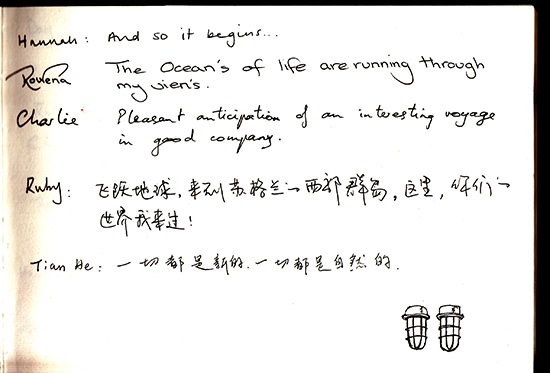 Hannah: And so it begins...
Rowena The Ocean's of life are running through
my vien's.
Charlie Pleasant anticipation of an interesting voyage
in good company.
Ruby: 飞跃地球,来到苏格兰的西部群岛,这里,你们的
世界我来过!
Tian He: 一切都是新的.一切都是自然的.